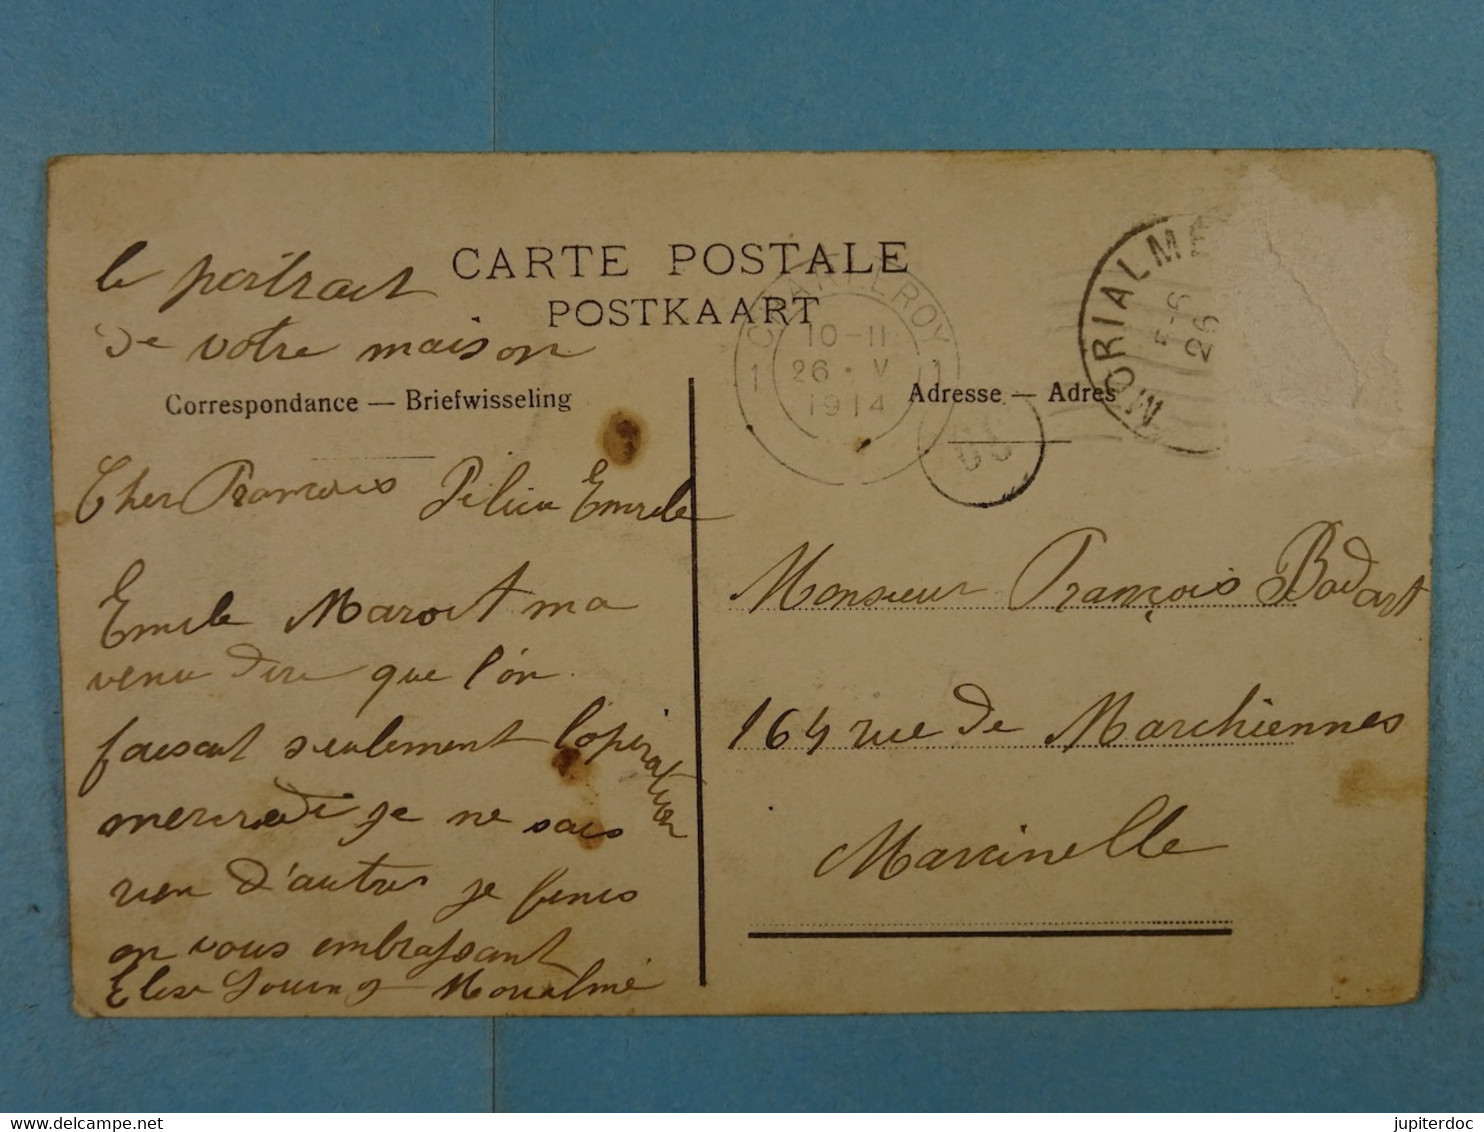 le portrait
de votre maison
CARTE POSTALE
POSTKAART
Correspondance — Briefwisseling
Adresse — Adres
CHARLEROY
1 1
10-11
26 · V
1914
MORIALME
5-6
26
Cher François Emile
Emile Maroit ma
venu dire que l'on
faisait seulement l'opération
mercredi je ne sais
rien d'autres je finis
en vous embrassant
Elise Morialmé
Monsieur François Badart
164 rue de Marchiennes
Marcinelle
jupiterdoc